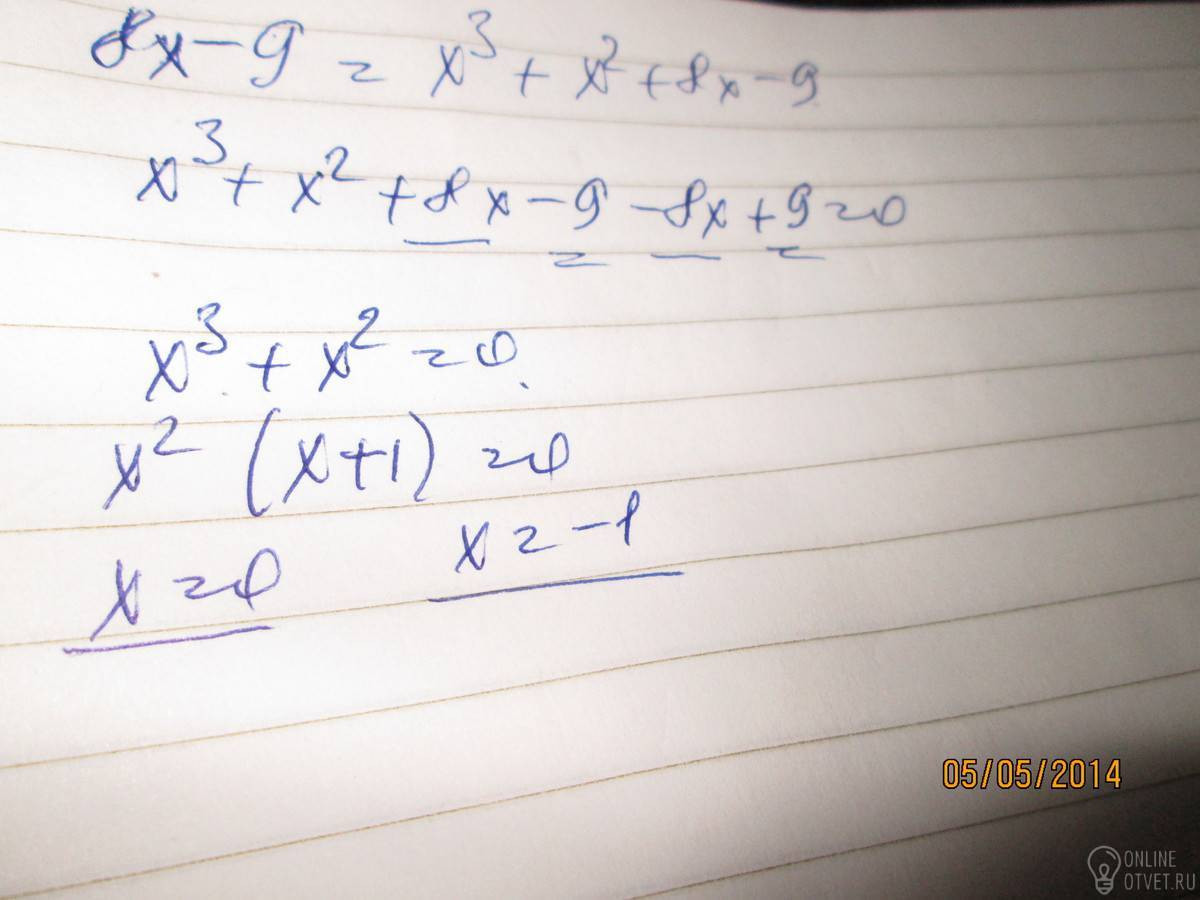 8x-9 = x³ + x² + 8x - 9
x³ + x² + 8x - 9 - 8x + 9 = 0
x³ + x² = 0.
x² (x+1) = 0
x = 0 x = -1
05/05/2014
ONLINE
OTVET.RU